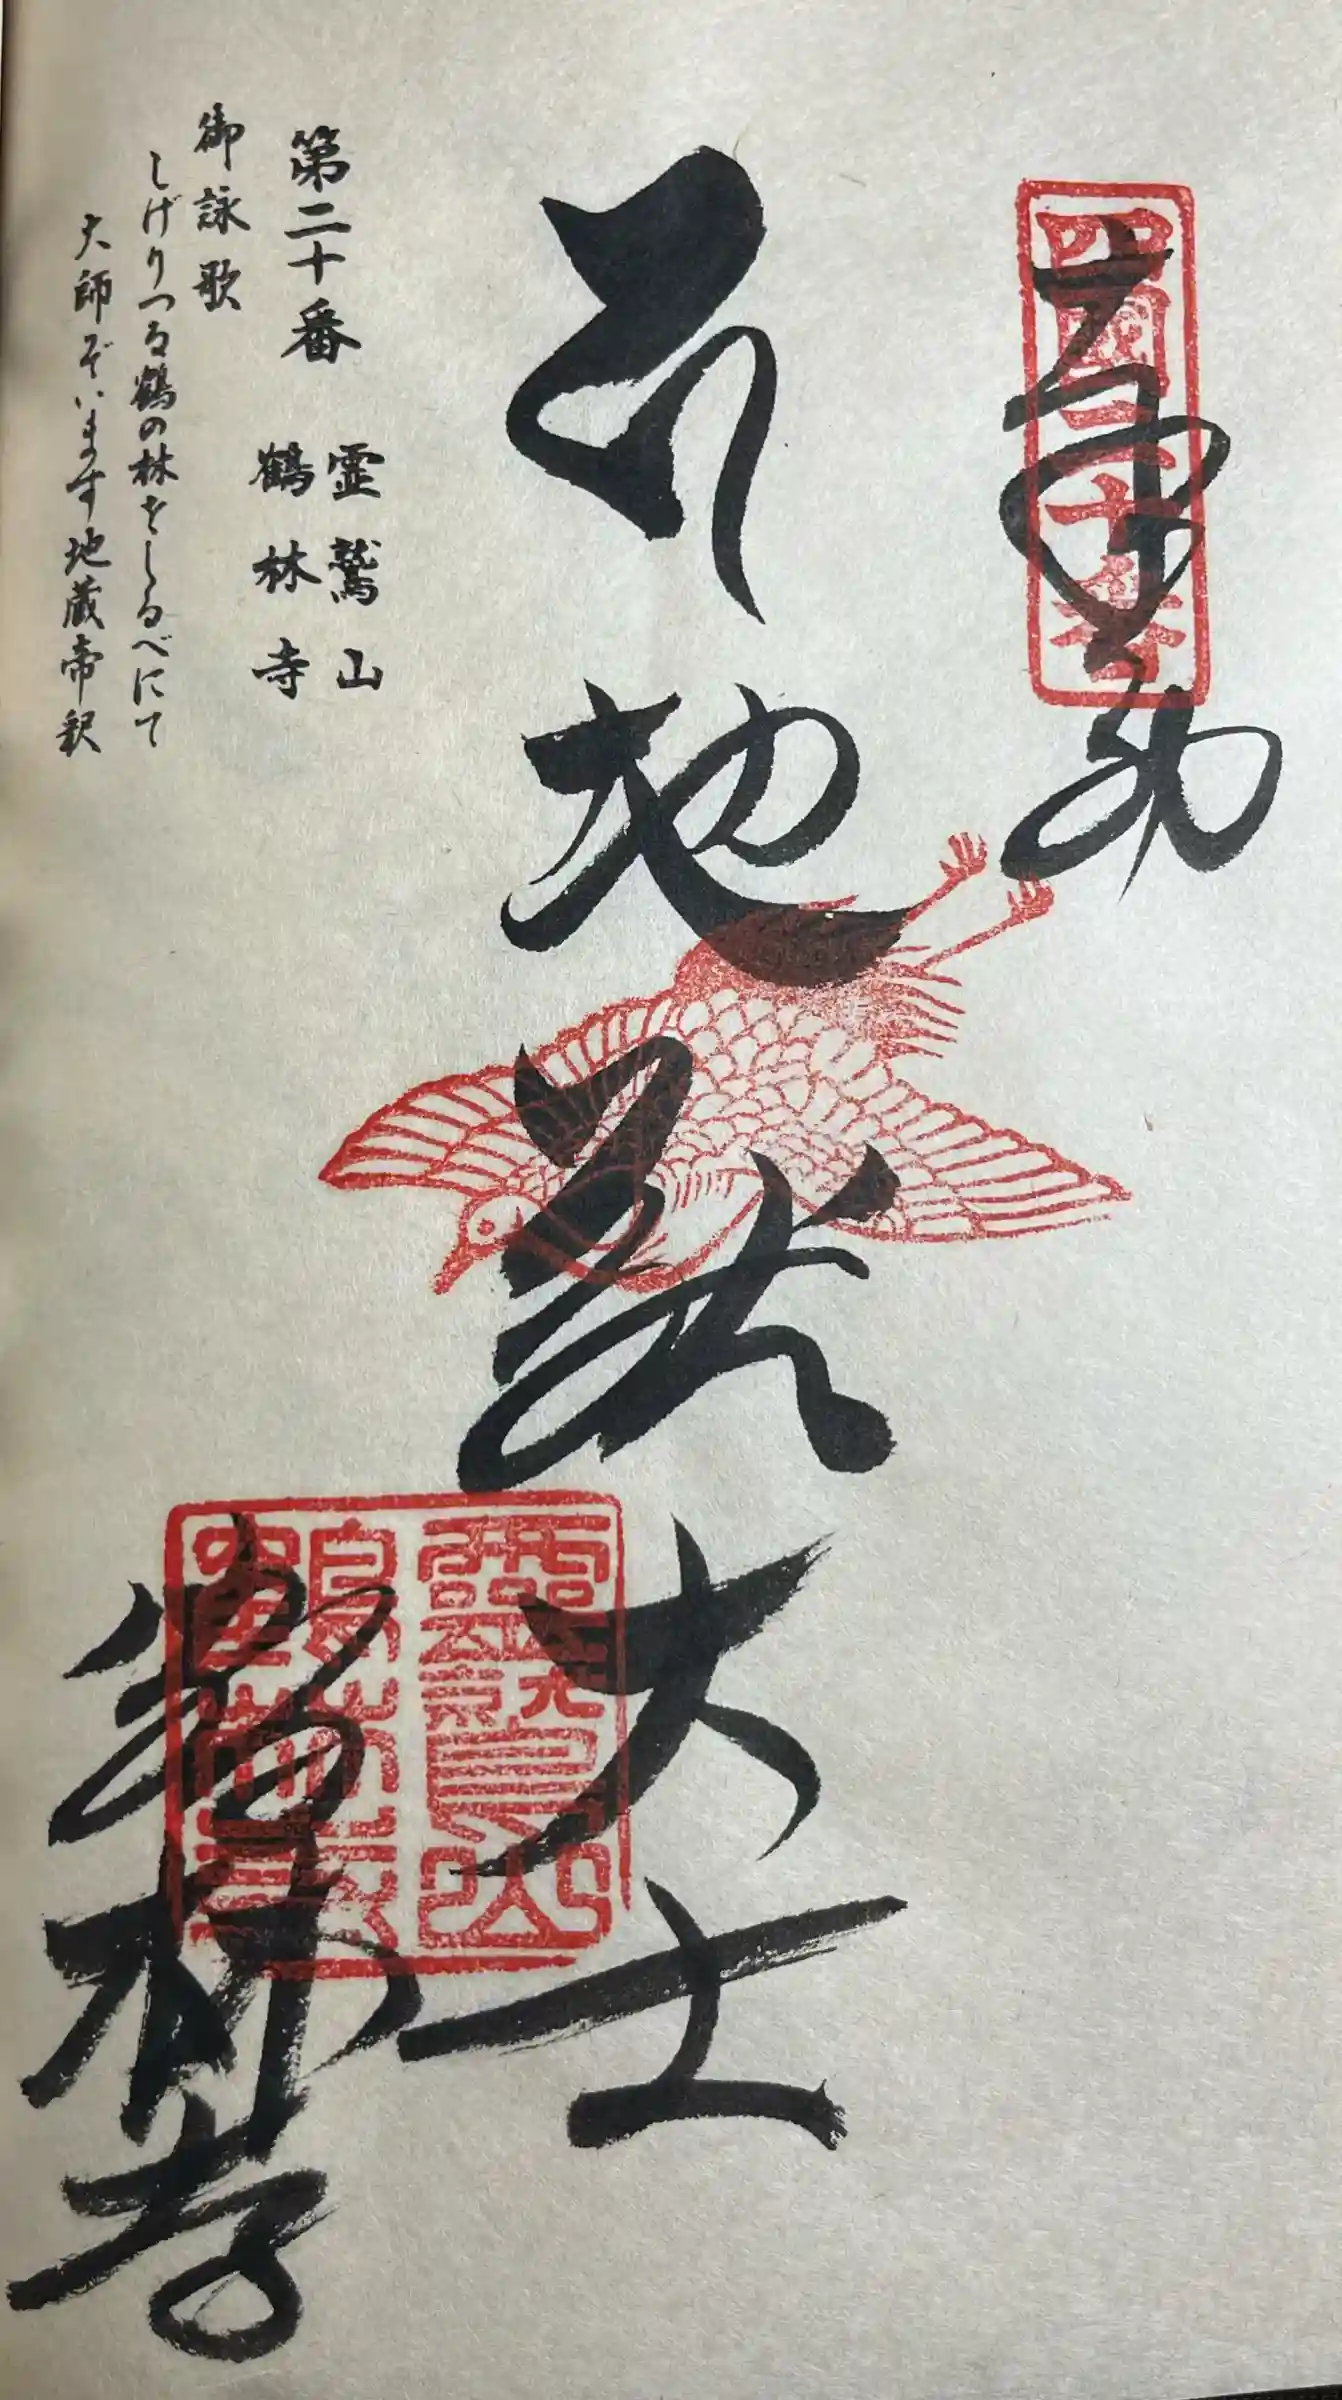 奉納
四国二十番
地蔵大士
霊鷲山
鶴林寺
第二十番
霊鷲山
鶴林寺
御詠歌
しげりつる鶴の林をしるべにて
大師ぞいます地蔵帝釈